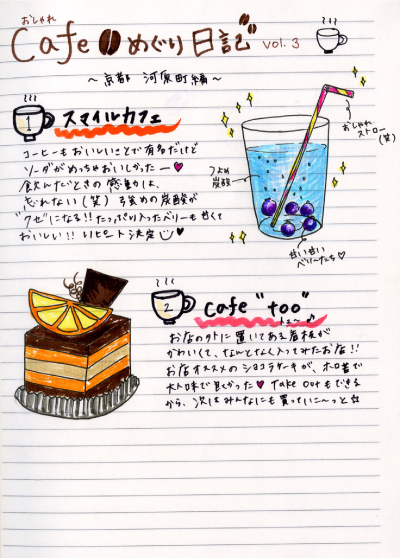 おしゃれ
Cafe めぐり日記" vol.3
〜京都 河原町編〜
1 スマイルカフェ
コーヒーもおいしいことで有名だけど
ソーダがめっちゃおいしかったー♥
飲んだときの感動は、
忘れない(笑) 強めの炭酸が
"クセ"になる!! たっぷり入ったベリーも甘くて
おいしい!! リピート決定
おしゃれ
ストロー
(笑)
つよめ
炭酸
甘い甘い
ベリーたち♡
2 cafe "too"
トゥー♪
お店のソトに置いてある看板が
かわいくて、なんとなく入ってみたお店!!
お店オススメのショコラケーキが、ホロ苦で
大人味で良かった♥ Take outもできる
から、次はみんなにも買っていこ〜っと☆